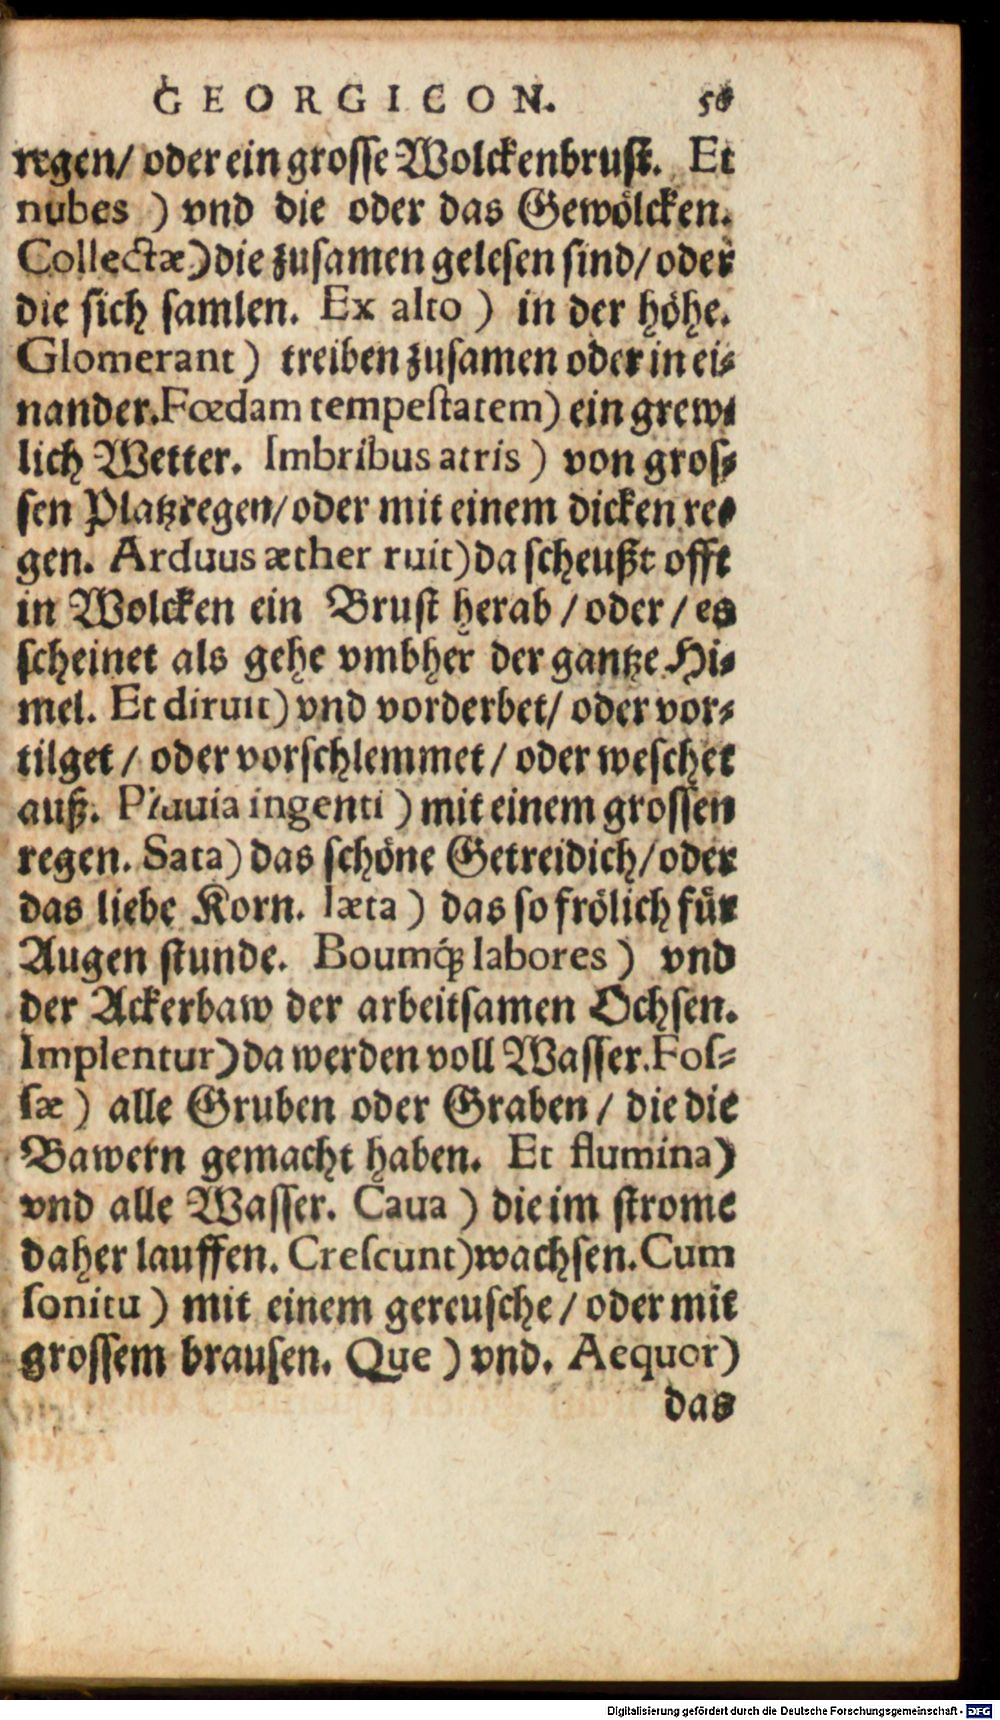 GEORGICON. 58
regen/ oder ein grosse Wolckenbrust. Et
nubes ) vnd die oder das Gewölcken.
Collectæ) die zusamen gelesen sind/ oder
die sich samlen. Ex alto ) in der höhe.
Glomerant ) treiben zusamen oder in ei-
nander. Fœdam tempestatem) ein grew-
lich Wetter. Imbribus atris ) von gros-
sen Platzregen/ oder mit einem dicken re-
gen. Arduus æther ruit) da scheußt offt
in Wolcken ein Brust herab / oder / es
scheinet als gehe vmbher der gantze Hi-
mel. Et diruit) vnd vorderbet/ oder vor-
tilget / oder vorschlemmet / oder weschet
auß. Pluuia ingenti ) mit einem grossen
regen. Sata) das schöne Getreidich/ oder
das liebe Korn. læta ) das so frölich für
Augen stunde. Boumq́; labores ) vnd
der Ackerbaw der arbeitsamen Ochsen.
Implentur) da werden voll Wasser. Fos-
sæ ) alle Gruben oder Graben / die die
Bawern gemacht haben. Et flumina)
vnd alle Wasser. Caua ) die im strome
daher lauffen. Crescunt) wachsen. Cum
sonitu ) mit einem gereusche / oder mit
grossem brausen. Que ) vnd. Aequor)
das
Digitalisierung gefördert durch die Deutsche Forschungsgemeinschaft - DFG